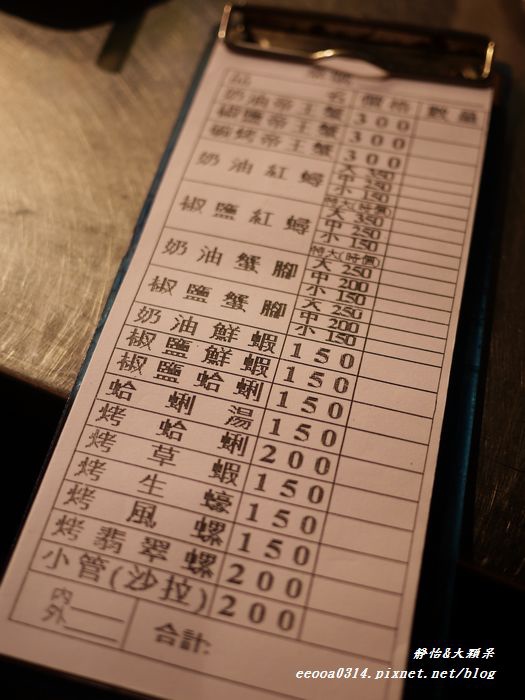 品名 價格 數量
奶油帝王蟹 300
椒鹽帝王蟹 300
碳烤帝王蟹 300
奶油紅蟳 大 350
中 250
小 150
椒鹽紅蟳 特大(時價)
大 350
中 250
小 150
奶油蟹腳 特大(時價)
大 250
中 200
小 150
椒鹽蟹腳 大 250
中 200
小 150
奶油鮮蝦 150
椒鹽鮮蝦 150
椒鹽蛤蜊 150
蛤蜊湯 150
烤蛤蜊 200
烤草蝦 150
烤生蠔 150
烤風螺 150
烤翡翠螺 200
小管(沙拉) 200
內
外
合計:
靜怡&大顆呆
eeooa0314.pixnet.net/blog